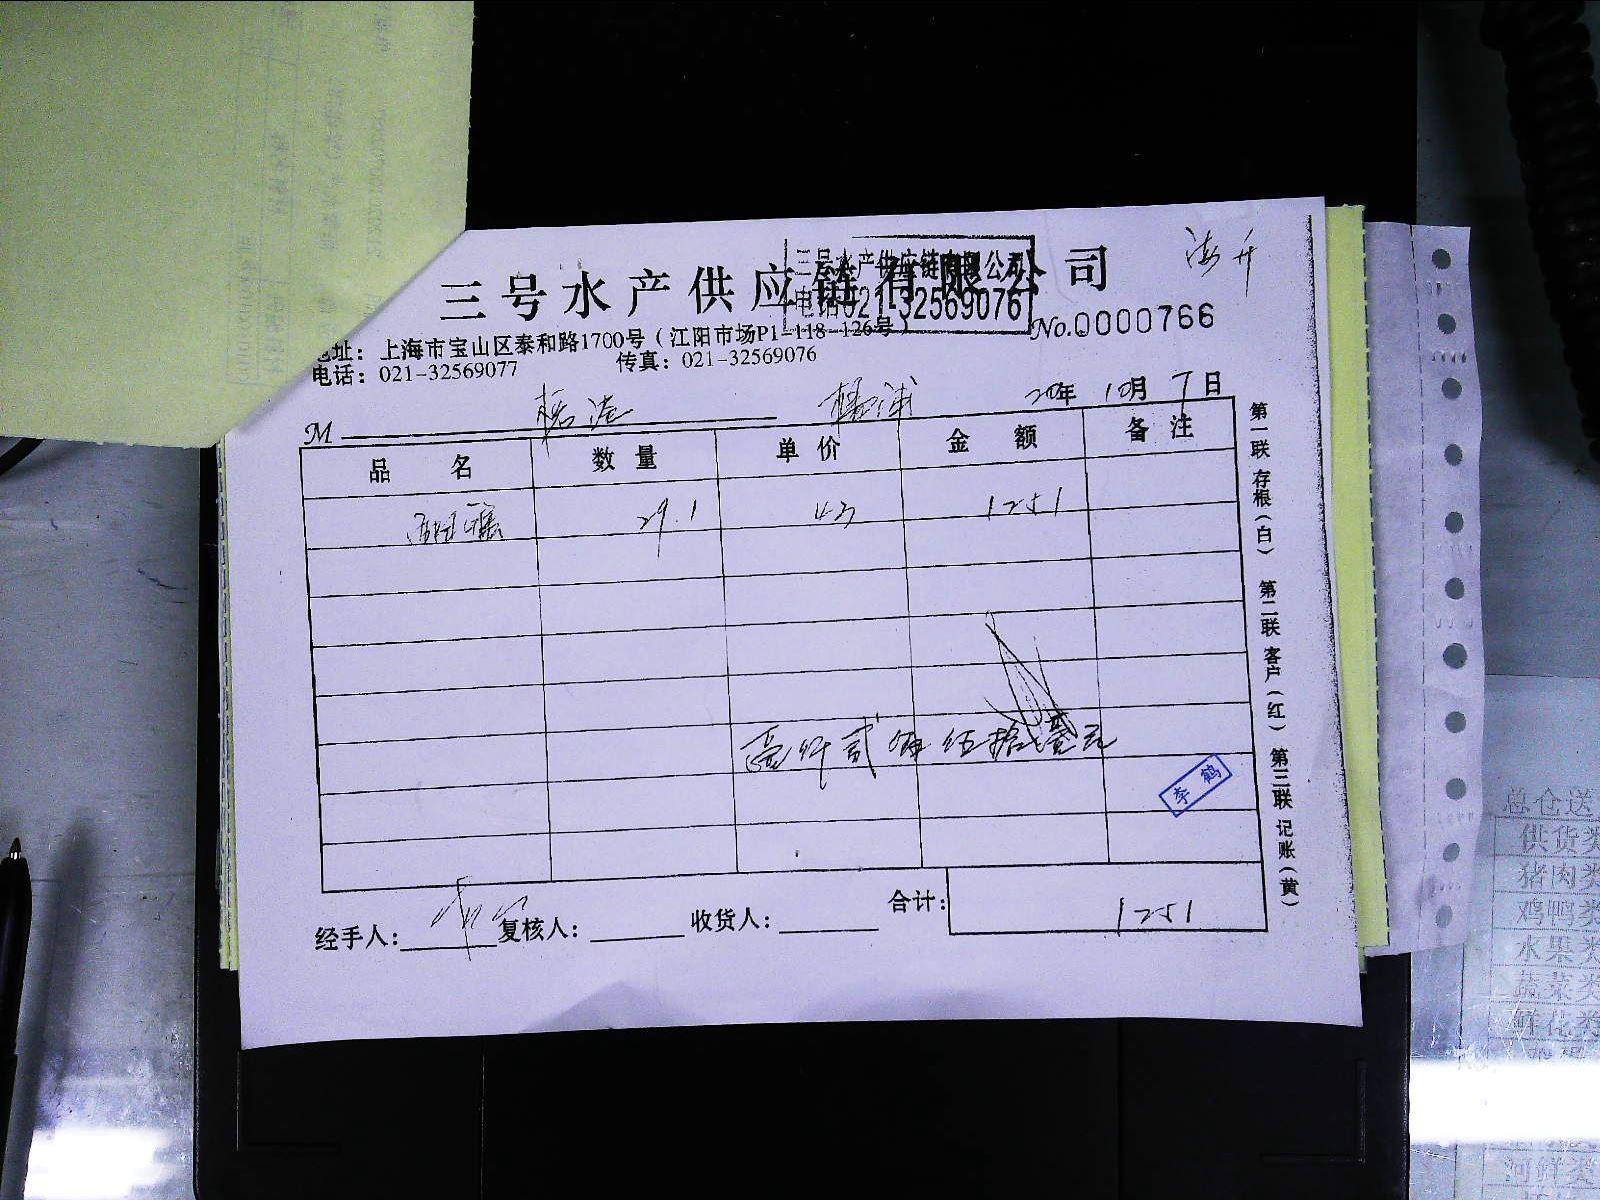 三号水产供应链有限公司
三号水产供应链有限公司
电话021-32569076
No.0000766
地址：上海市宝山区泰和路1700号（江阳市场P1-118-126号）
电话：021-32569077 传真：021-32569076
M 杨浦 20年 10月 7日
品名 数量 单价 金额 备注
29.1 43 1251
壹仟贰佰伍拾壹元
李鹤
合计： 1251
经手人： 复核人： 收货人：
第一联 存根（白） 第二联 客户（红） 第三联 记账（黄）
总仓送
供货类
猪肉类
鸡鸭类
水果类
蔬菜类
鲜花类
河鲜类